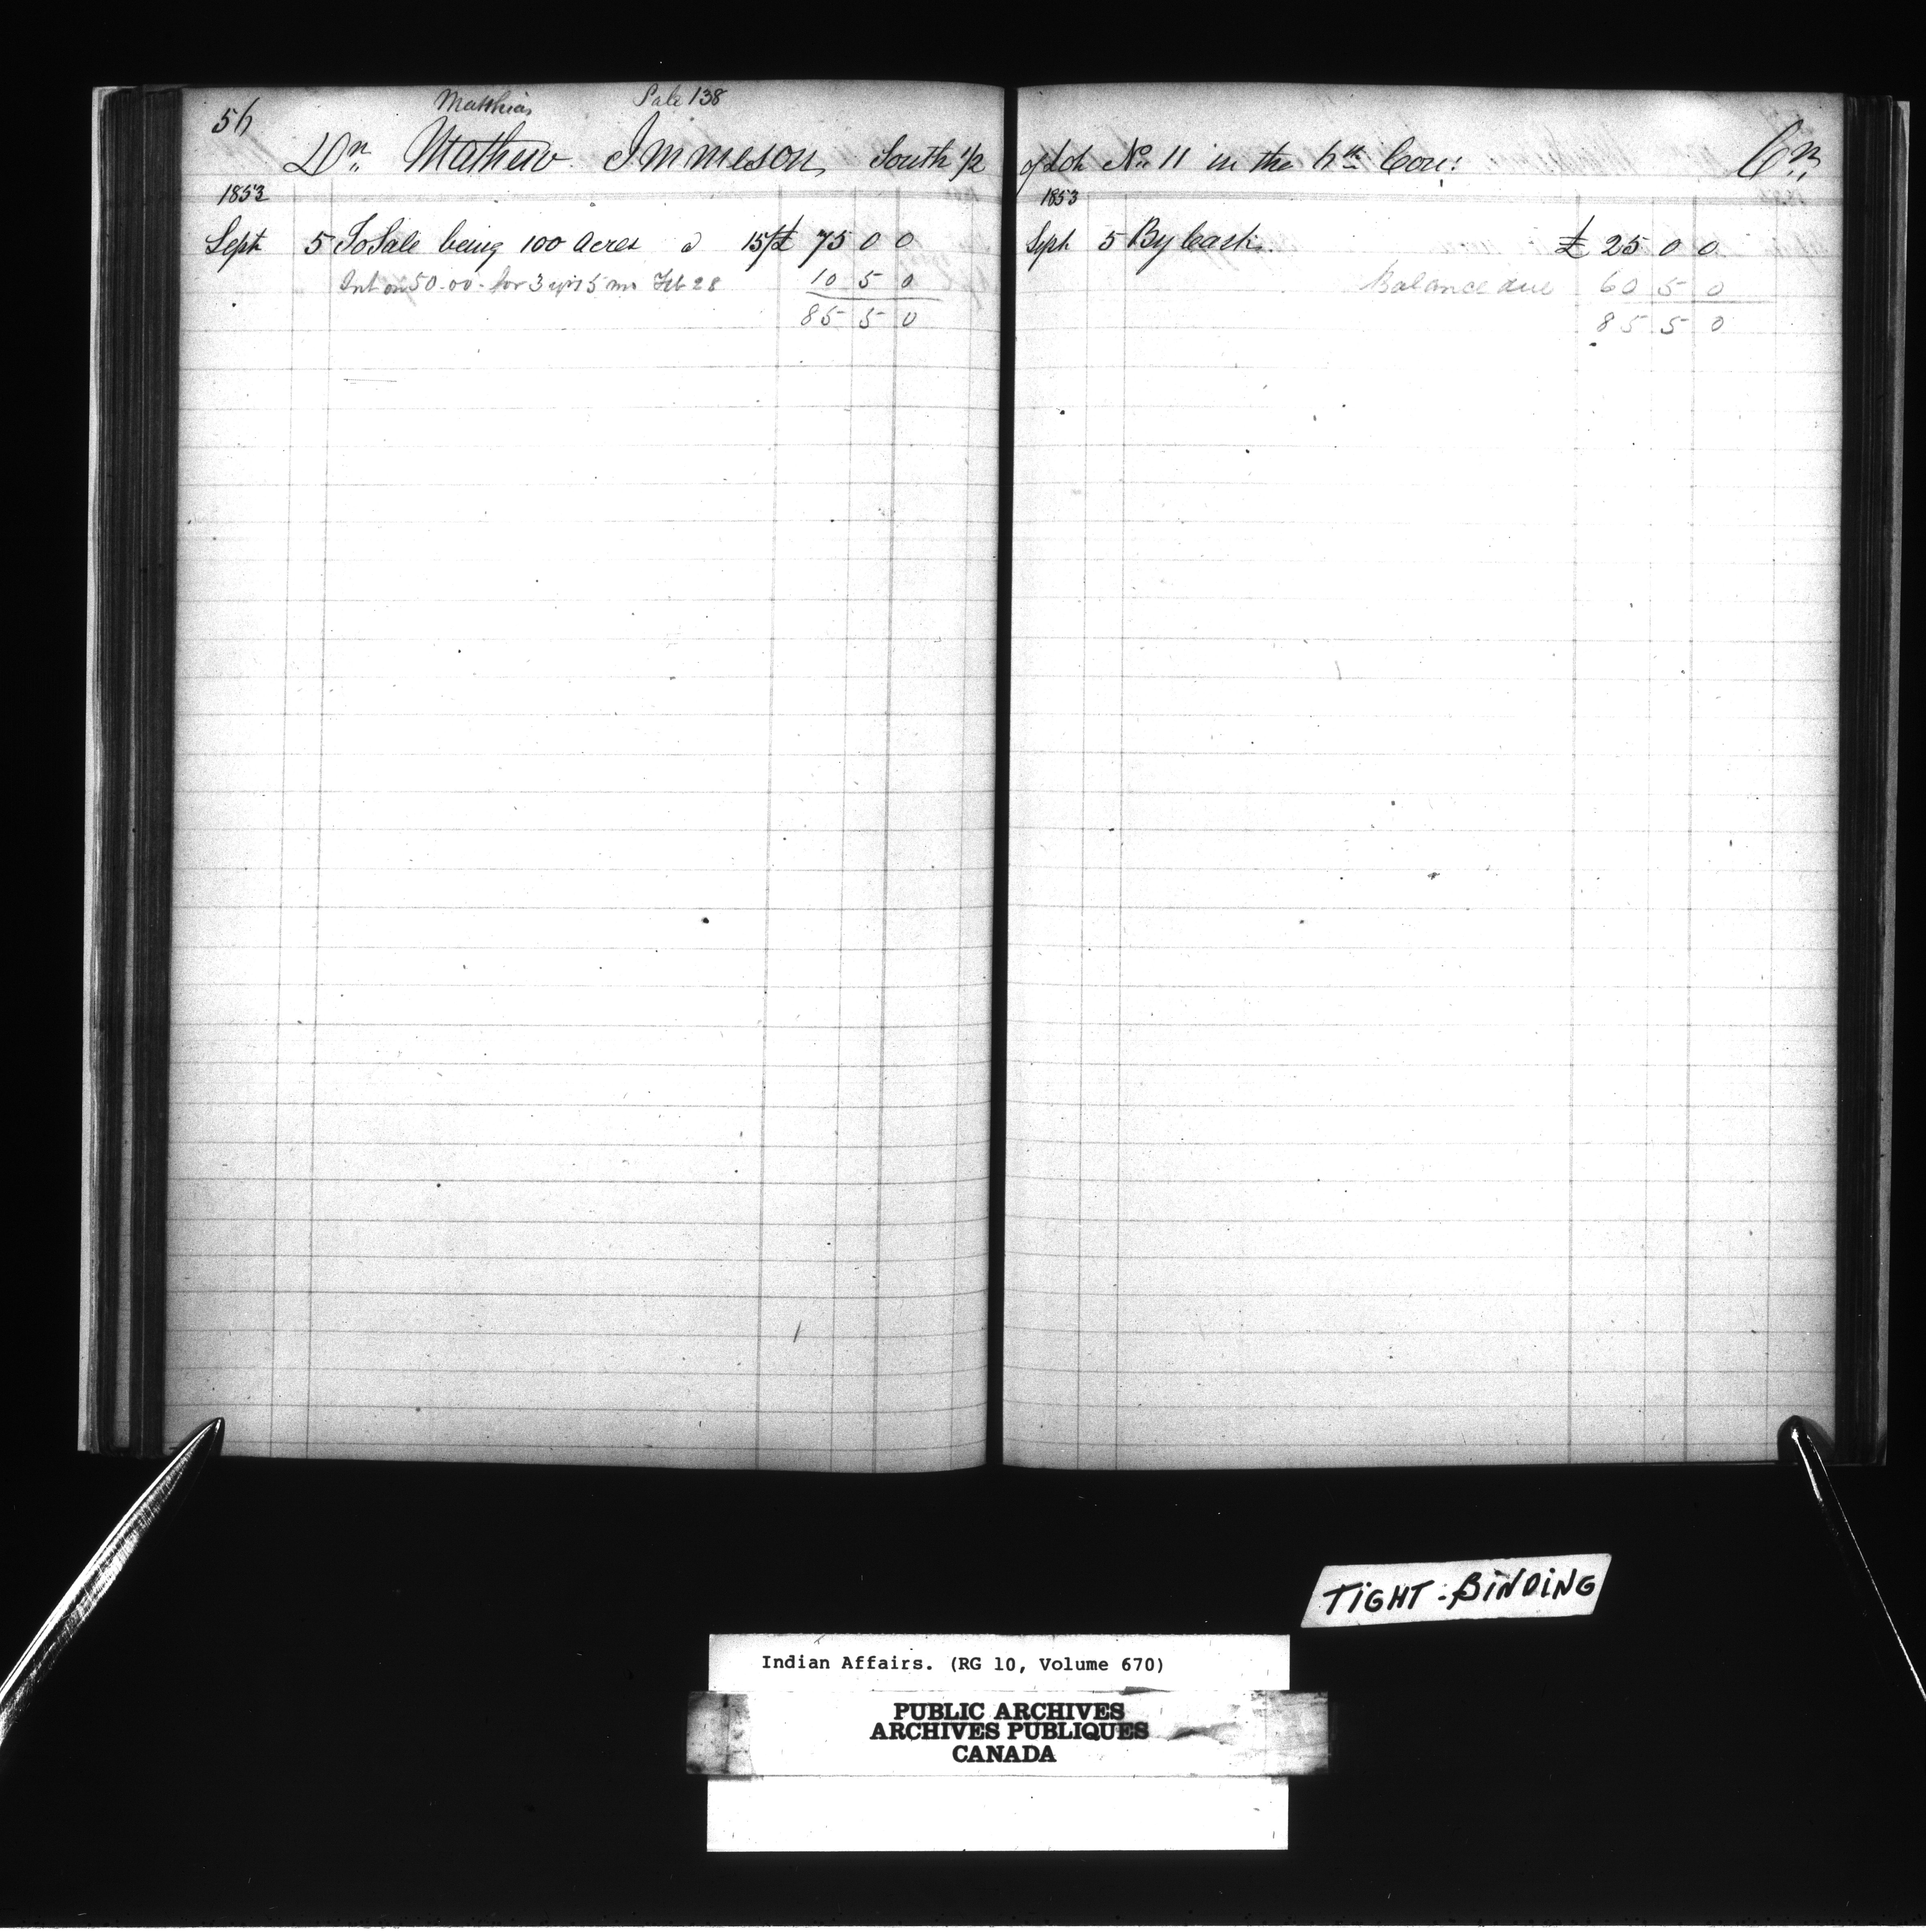 56
Matthias Sale 138
Dr. Mathew Immeson South 1/2 of Lot No 11 in the 6th Con: Cr.
1853
Sept 5 To Sale being 100 Acres @ 15/ £ 75 0 0
Int on 50.00. for 3 yrs 5 mo Feb 28 10 5 0
85 5 0
1853
Sept 5 By Cash. £ 25 0 0
Balance due 60 5 0
85 5 0
TIGHT-BINDING
Indian Affairs. (RG 10, Volume 670)
PUBLIC ARCHIVES
ARCHIVES PUBLIQUES
CANADA